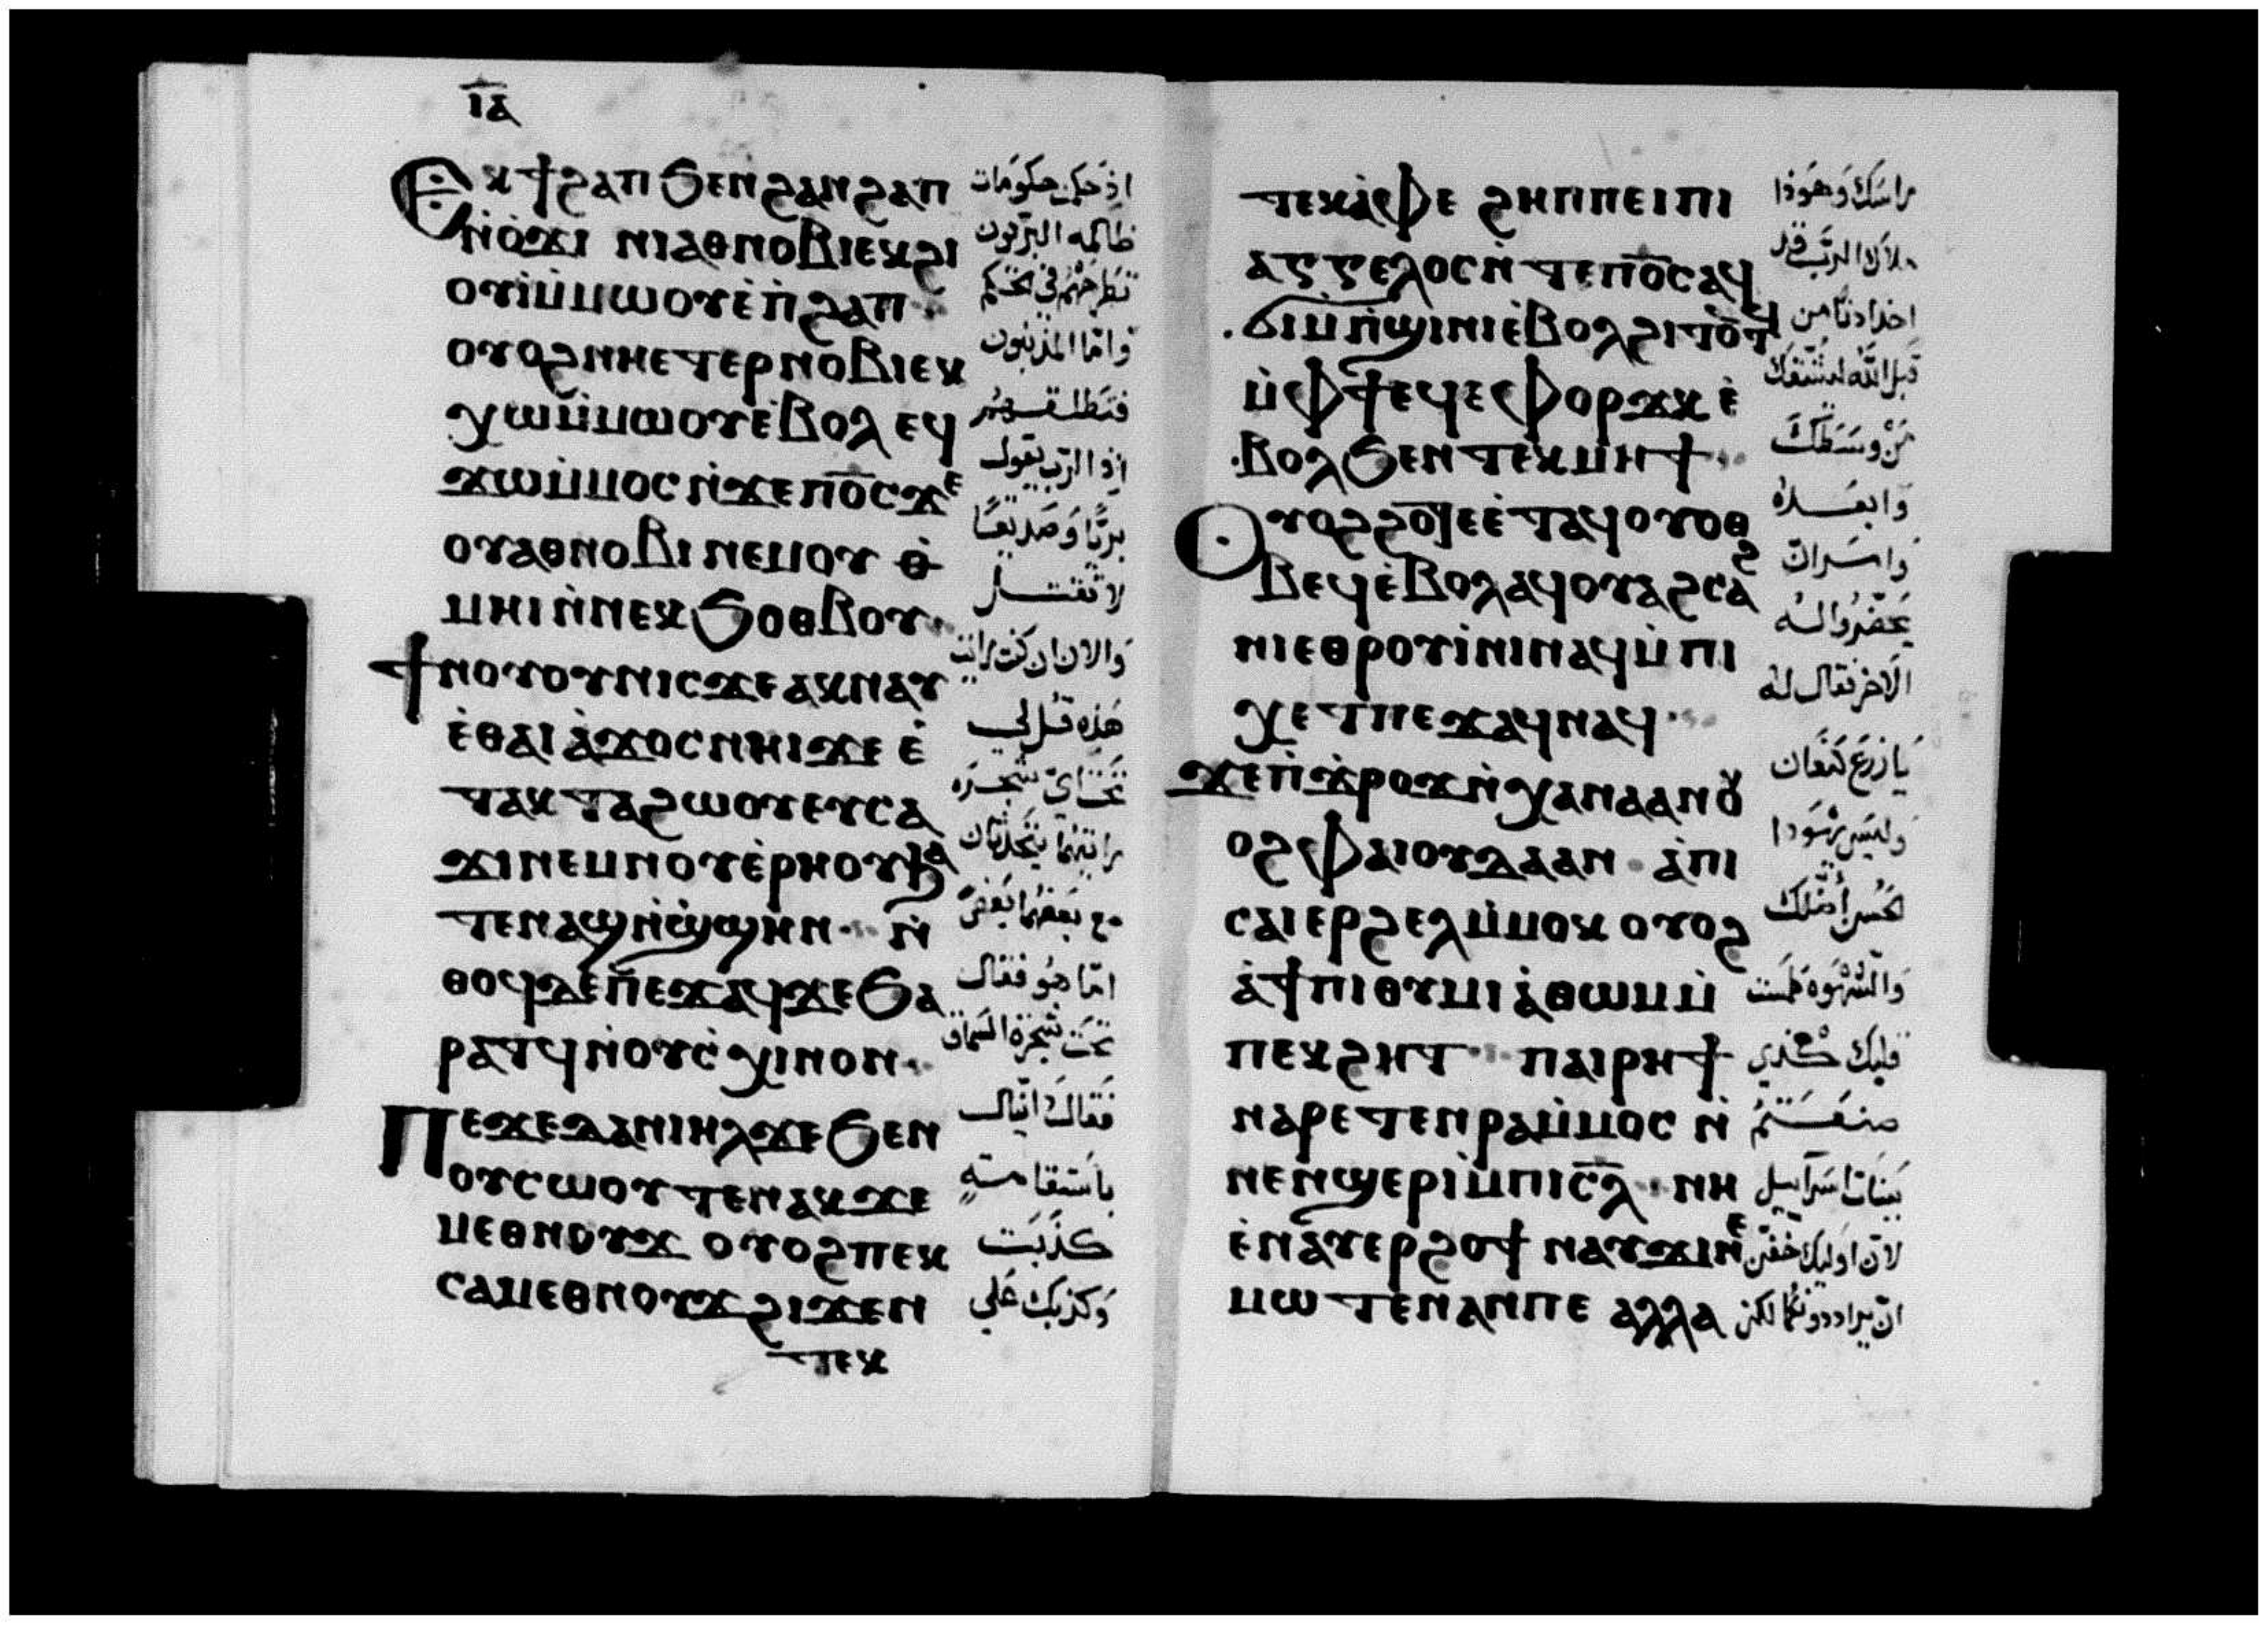 ⲓ̅ⲁ̅
Ⲉⲕϯϩⲁⲡ ϧⲉⲛ ϩⲁⲛϩⲁⲡ
ⲛ̀ⲟ̀ϫⲓ ⲛⲓⲁⲑⲛⲟⲃⲓ ⲉⲕϩⲓ
ⲟⲩⲓ̀ⲙ̀ⲙⲱⲟⲩ ⲉ̀ⲡ̀ϩⲁⲡ
ⲟⲩⲟϩ ⲛⲏⲉⲧⲉⲣⲛⲟⲃⲓ ⲉⲕ
ⲭⲱⲙ̀ⲙⲱⲟⲩ ⲉ̀ⲃⲟⲗ ⲉϥ
ϫⲱⲙ̀ⲙⲟⲥ ⲛ̀ϫⲉ ⲡ̅ⲟ̅ⲥ̅ ϫⲉ
ⲟⲩⲁⲑⲛⲟⲃⲓ ⲛⲉⲙ ⲟⲩ ⲑ̀
ⲙⲏⲓ ⲛ̀ⲛⲉⲕϧⲟⲑⲃⲟⲩ
ϯⲛⲟⲩ ⲟⲩⲛ ⲓⲥϫⲉ ⲁⲕⲛⲁⲩ
ⲉ̀ⲑⲁⲓ ⲁ̀ϫⲟⲥ ⲛⲏⲓ ϫⲉ ⲉ̀
ⲧⲁⲕⲧⲁϩⲱⲟⲩ ⲉⲩⲥⲁ
ϫⲓ ⲛⲉⲙ ⲛⲟⲩⲉ̀ⲣⲏⲟⲩ ϧⲁ
ⲧⲉⲛ ⲁϣ ⲛ̀ϣ̀ϣⲏⲛ ⲛ̀
ⲑⲟϥ ⲇⲉ ⲡⲉϫⲁϥ ϫⲉ ϧⲁ
ⲣⲁⲧϥ ⲛ̀ⲟⲩⲥ̀ⲭⲓⲛⲟⲛ
Ⲡⲉϫⲉ ⲇⲁⲛⲓⲏⲗ ϫⲉ ϧⲉⲛ
ⲟⲩⲥⲱⲟⲩⲧⲉⲛ ⲁⲕϫⲉ
ⲙⲉⲑⲛⲟⲩϫ ⲟⲩⲟϩ ⲡⲉⲕ
ⲥⲁⲙⲉⲑⲛⲟⲩϫ ϩⲓϫⲉⲛ
ⲧⲉⲕ
اذ حكمت حكومات
ظالمه البريون
تطرحهم في الحكم
واما المذنبون
فتطلقهم
اذ الرب يقول
بريًا وصديقًا
لا تقتل
والان ان كنت رايت
هذه قل لي
تحت اي شجره
رايتهما يتحدثان
مع بعضهما بعض
اما هو فقال
تحت شجرة السماق
فقال دانيال
باستقامةٍ
كذبت
وكذبك على
ⲧⲉⲕⲁ̀ⲫⲉ ϩⲏⲡⲡⲉ ⲓⲥ ⲡⲓ
ⲁⲅⲅⲉⲗⲟⲥ ⲛ̀ⲧⲉ ⲡ̅ⲟ̅ⲥ̅ ⲁϥ
ϭⲓ ⲙ̀ⲡ̀ϣⲓⲛⲓ ⲉ̀ⲃⲟⲗ ϩⲓⲧⲟⲧϥ
ⲙ̀ⲫϯ ⲉϥⲉⲫⲟⲣϫⲕ ⲉ̀
ⲃⲟⲗ ϧⲉⲛ ⲧⲉⲕⲙⲏϯ
Ⲟⲩⲟϩ ϩⲟⲧⲉ ⲉ̀ⲧⲁϥⲟⲩⲟⲑ
ⲃⲉϥ ⲉ̀ⲃⲟⲗ ⲁϥⲟⲩⲁϩⲥⲁϩ
ⲛⲓ ⲉⲑⲣⲟⲩⲓ̀ⲛⲓ ⲛⲁϥ ⲙ̀ⲡⲓ
ⲭⲉⲧ ⲡⲉϫⲁϥ ⲛⲁϥ
ϫⲉ ⲡ̀ϫ̀ⲣⲟϫ ⲛ̀ⲭⲁⲛⲁⲁⲛ ⲟⲩ
ⲟϩ ⲫⲁ ⲓⲟⲩⲇⲁ ⲁⲛ ⲁ̀ ⲡⲓ
ⲥⲁⲓ ⲉⲣϩⲉⲗ ⲙ̀ⲙⲟⲕ ⲟⲩⲟϩ
ⲁ̀ ϯⲉⲡⲓⲑⲩⲙⲓⲁ̀ ⲑⲱⲙ ⲙ̀
ⲡⲉⲕϩⲏⲧ ⲡⲁⲓⲣⲏϯ
ⲛⲁⲣⲉⲧⲉⲛⲣⲁ ⲙ̀ⲙⲟⲥ ⲛ̀
ⲛⲉⲛϣⲉⲣⲓ ⲙ̀ⲡⲓⲥ̅ⲗ̅ ⲛⲏ
ⲉ̀ⲛⲁⲩⲉⲣϩⲟϯ ⲛⲁⲩϫⲓⲛⲉ
ⲙⲱⲧⲉⲛ ⲁⲛ ⲡⲉ ⲁⲗⲗⲁ
راسك وهوذا
ملاك الرب قد
اخذ اذنا من
قبل الله ليشقك
من وسطك
وابعده
وامر ان
يحضروا اليه
الاخر فقال له
يا زرع كنعان
وليس يهودا
الحسن اضلك
والشهوة طمست
قلبك كذي
صنعتم
ببنات اسراييل
لان اوليك خفن